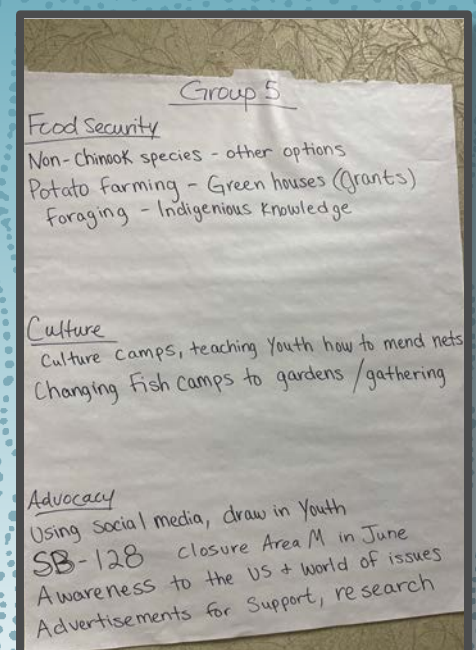 Group 5
Food Security
Non-Chinook species - other options
Potato farming - Green houses (grants)
foraging - Indigenious knowledge
Culture
Culture camps, teaching Youth how to mend nets
Changing Fish camps to gardens / gathering
Advocacy
Using social media, draw in Youth
SB-128 closure Area M in June
Awareness to the US + world of issues
Advertisements for Support, research